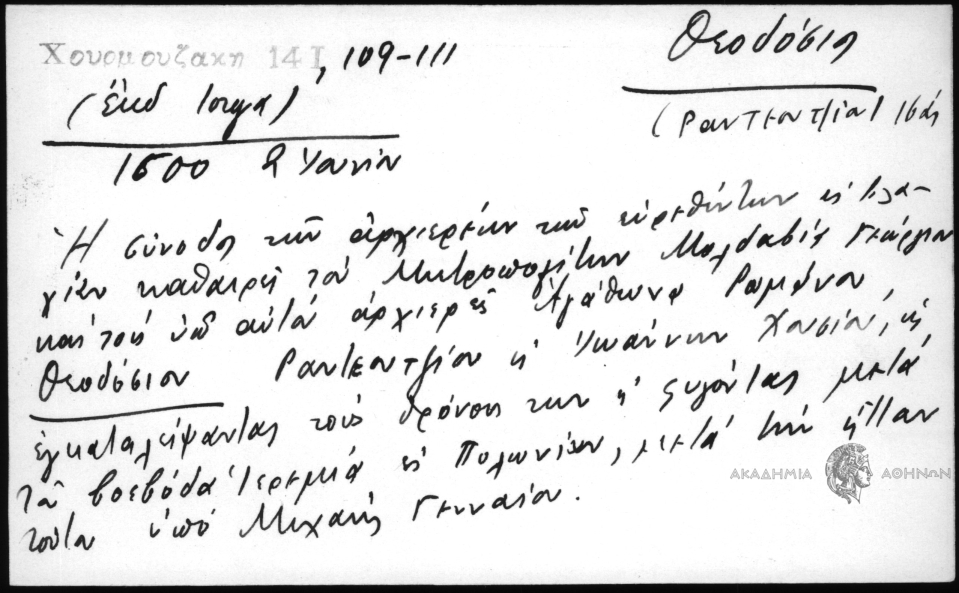 Χουρμουζάκη 14 Ι, 109-111
Θεοδόσιος
(ἔκδ Iorga)
(Ραντεντζίου)
1600
Ἡ σύνοδος τῶν ἀρχιερέων τῶν εὑρεθέντων εἰς Βλα-
χίαν καθαιρεῖ τὸν Μητροπολίτην Μολδαβίας Γεώργιον
καὶ τοὺς ὑπ' αὐτὸν ἀρχιερεῖς Ἀγάθωνα Ρωμάνου,
Θεοδόσιον Ραντεντζίου κ' Ἰωάννην Χουσίου, ὡς
ἐγκαταλείψαντας τοὺς θρόνους των κ' φυγόντας μετὰ
τοῦ βοεβόδα Ἰερεμία εἰς Πολωνίαν, μετὰ τὴν ἧτταν
τούτου ὑπὸ Μιχαὴλ Γενναίου.
ΑΚΑΔΗΜΙΑ ΑΘΗΝΩΝ